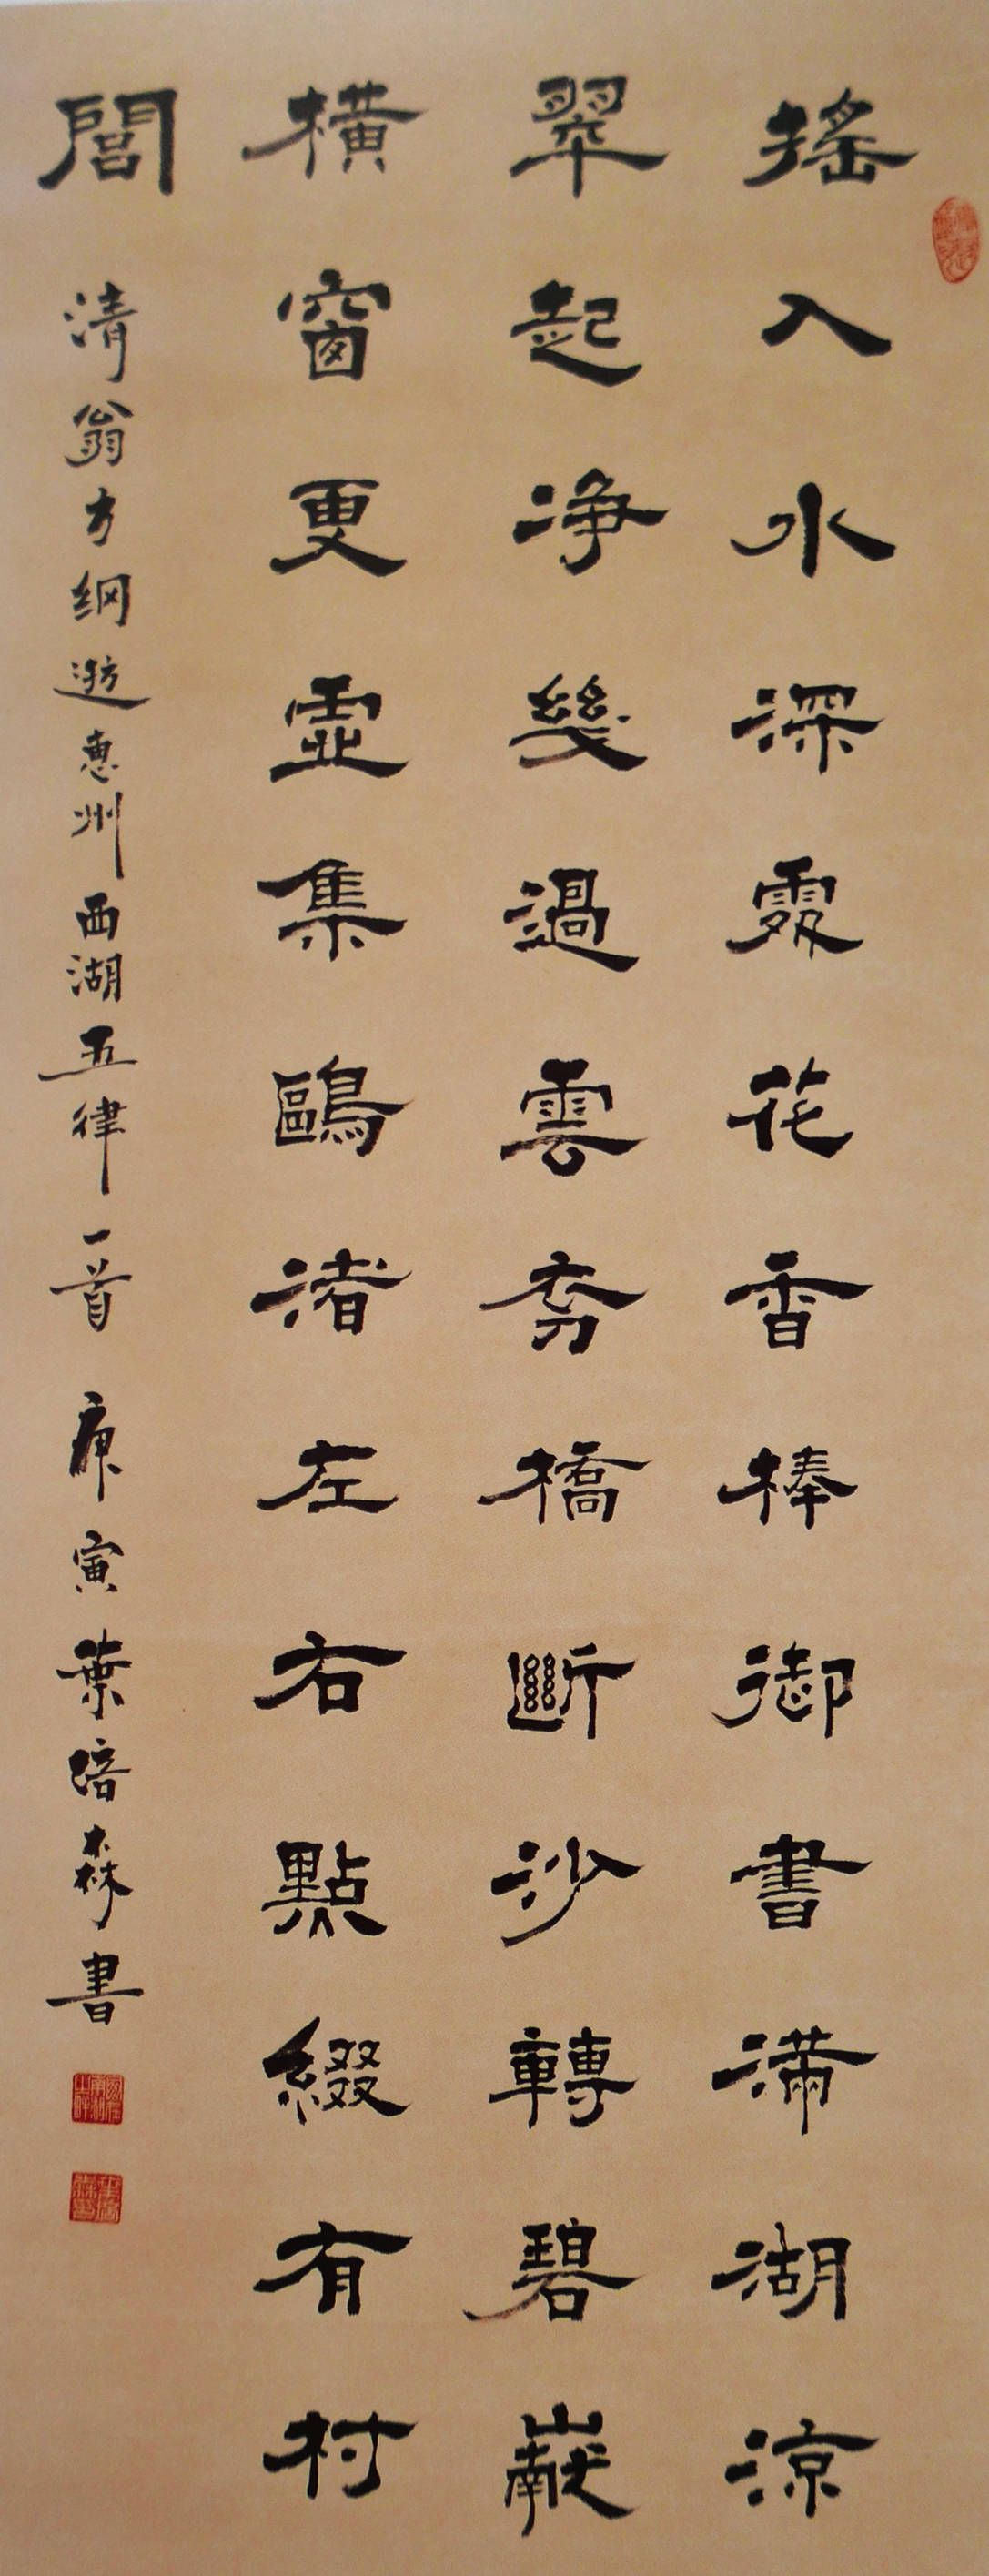 搖入水深處花香棒御書滿湖涼
翠起净幾過雲初橋斷沙轉碧巘
橫窗更虛集鷗渚左右點綴有村
閭 清翁方綱遊惠州西湖五律一首 庚寅葉培森書